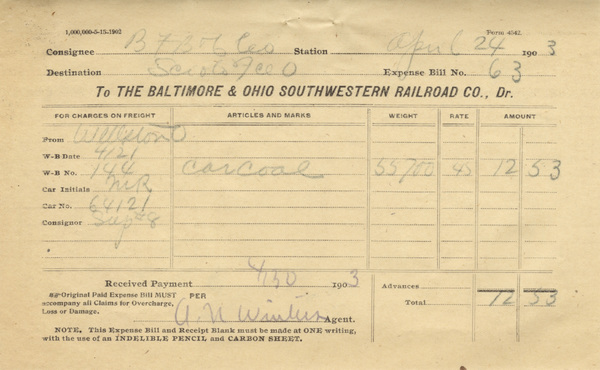 1,000,000-5-15-1902 Form 4542.
Consignee B F B & Co Station April 24 1903
Destination Scioto O Expense Bill No. 63
To THE BALTIMORE & OHIO SOUTHWESTERN RAILROAD CO., Dr.
FOR CHARGES ON FREIGHT ARTICLES AND MARKS WEIGHT RATE AMOUNT
From Wellston O
W-B Date 4/21
W-B No. 144 Car coal 55700 45 12 53
Car Initials
Car No. 64121
Consignor
Received Payment 4/30 1903 Advances
Original Paid Expense Bill MUST accompany all Claims for Overcharge, Loss or Damage.
PER A. N. Winters Agent.
Total 12 53
NOTE. This Expense Bill and Receipt Blank must be made at ONE writing,
with the use of an INDELIBLE PENCIL and CARBON SHEET.